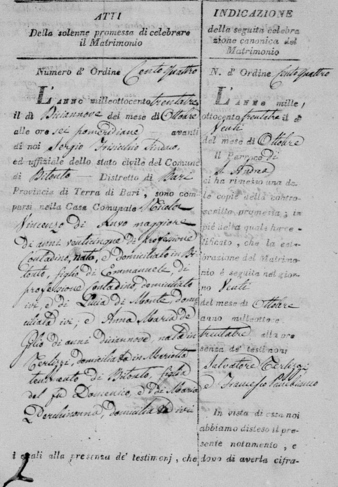 ATTI
Della solenne promessa di celebrare
il Matrimonio
Numero d'Ordine Centoquattro
L'ANNO milleottocento trentatre
il dì Diciannove del mese di Ottobre
alle ore sei pomeridiane avanti
di noi Sergio Sindaco
ed uffiziale dello stato civile del Comune
di Bitonto Distretto di Bari
Provincia di Terra di Bari, sono com-
parsi nella Casa Comunale Nicola
Vincenzo di Ruvo maggiore
di anni venticinque di professione
Contadino, nato, e domiciliato in Bi-
tonto, figlio di Emmanuele, di
professione Contadino, domiciliato
ivi, e di Lucia di Monte domi-
ciliata ivi; e Anna Maria de
di anni diciannove nata in
Terlizzi, domiciliata in
di Bitonto, figlia
del fu Domenico, e di Maria
domiciliata ivi
i quali alla presenza de' testimonj, che
INDICAZIONE
della seguita celebra
zione canonica del
Matrimonio
N. d'Ordine Centoquattro
L'ANNO mille
ottocento trentatre il dì
Venti
del mese di Ottobre
il Parroco di
S. Andrea
ci ha rimessa una del-
le copie della contro-
scritta promessa; in
piè della quale ha cer-
tificato, che la cele-
brazione del Matrimo-
nio è seguita nel gior-
no Venti
del mese di Ottobre
anno milleotto
trentatre alla pre
senza de' testimonj
Salvatore Terlizzi
e Francesco
In vista di essa noi
abbiamo disteso il pre-
sente notamento, e
dopo di averla cifra-